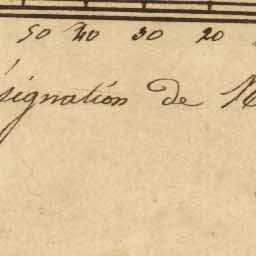 50 40 30 20
signation de